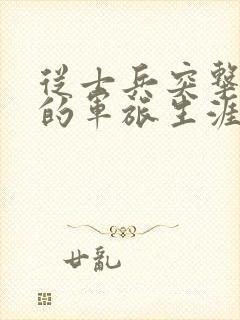 從士兵突擊
的軍旅生涯
廿亂